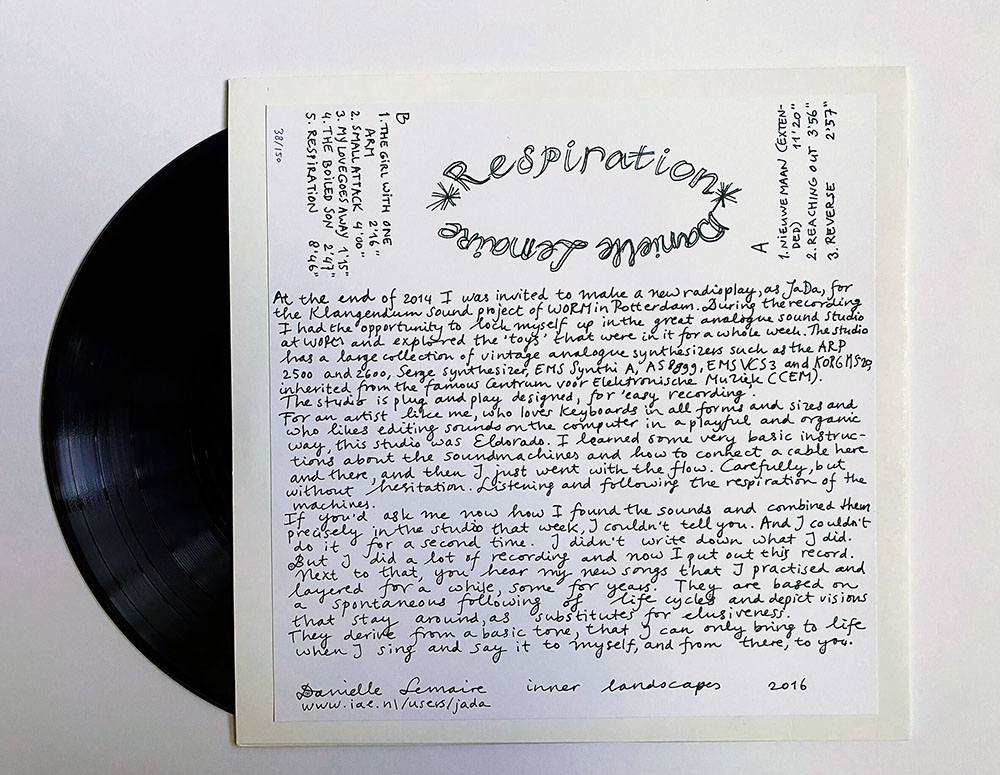 38/150
B
1. THE GIRL WITH ONE
ARM 2'16"
2. SMALL ATTACK 4'00"
3. MY LOVE GOES AWAY 1'15"
4. THE BOILED SON 2'47"
5. RESPIRATION 8'46"
*Respiration*
Danielle Lemaire
A
1. NIEUWE MAAN (EXTEN-
DED) 11'20"
2. REACHING OUT 3'56"
3. REVERSE 2'57"
At the end of 2014 I was invited to make a new radioplay, as JaDa, for
the Klangendum sound project of WORM in Rotterdam. During the recording
I had the opportunity to lock myself up in the great analogue sound studio
at WORM and explored the 'toys' that were in it for a whole week. The studio
has a large collection of vintage analogue synthesizers such as the ARP
2500 and 2600, Serge synthesizer, EMS Synthi A, AS 8999, EMS VCS3 and KORG MS20,
inherited from the famous Centrum voor Elektronische Muziek (CEM).
The studio is plug and play designed, for 'easy recording'.
For an artist like me, who loves keyboards in all forms and sizes and
who likes editing sounds on the computer in a playful and organic
way, this studio was Eldorado. I learned some very basic instruc-
tions about the soundmachines and how to connect a cable here
and there, and then I just went with the flow. Carefully, but
without hesitation. Listening and following the respiration of the
machines.
If you'd ask me now how I found the sounds and combined them
precisely in the studio that week, I couldn't tell you. And I couldn't
do it for a second time. I didn't write down what I did.
But I did a lot of recording and now I put out this record.
Next to that, you hear my new songs that I practised and
layered for a while, some for years. They are based on
a spontaneous following of life cycles and depict visions
that stay around, as substitutes for elusiveness.
They derive from a basic tone, that I can only bring to life
when I sing and say it to myself, and from there, to you.
Danielle Lemaire inner landscapes 2016
www.iae.nl/users/jada